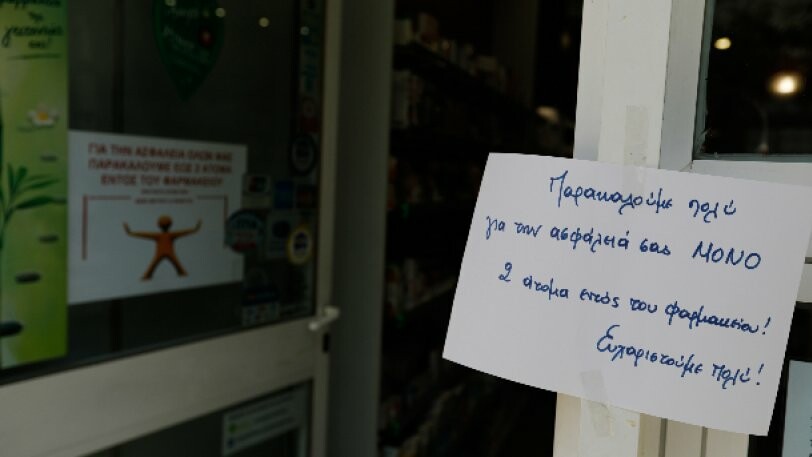 γεύσεις
σας!
ΓΙΑ ΤΗΝ ΑΣΦΑΛΕΙΑ ΟΛΩΝ ΜΑΣ
ΠΑΡΑΚΑΛΟΥΜΕ ΕΩΣ 2 ΑΤΟΜΑ
ΕΝΤΟΣ ΤΟΥ ΦΑΡΜΑΚΕΙΟΥ
Παρακαλούμε πολύ
για την ασφάλειά σας ΜΟΝΟ
2 άτομα εντός του φαρμακείου!
Ευχαριστούμε πολύ!